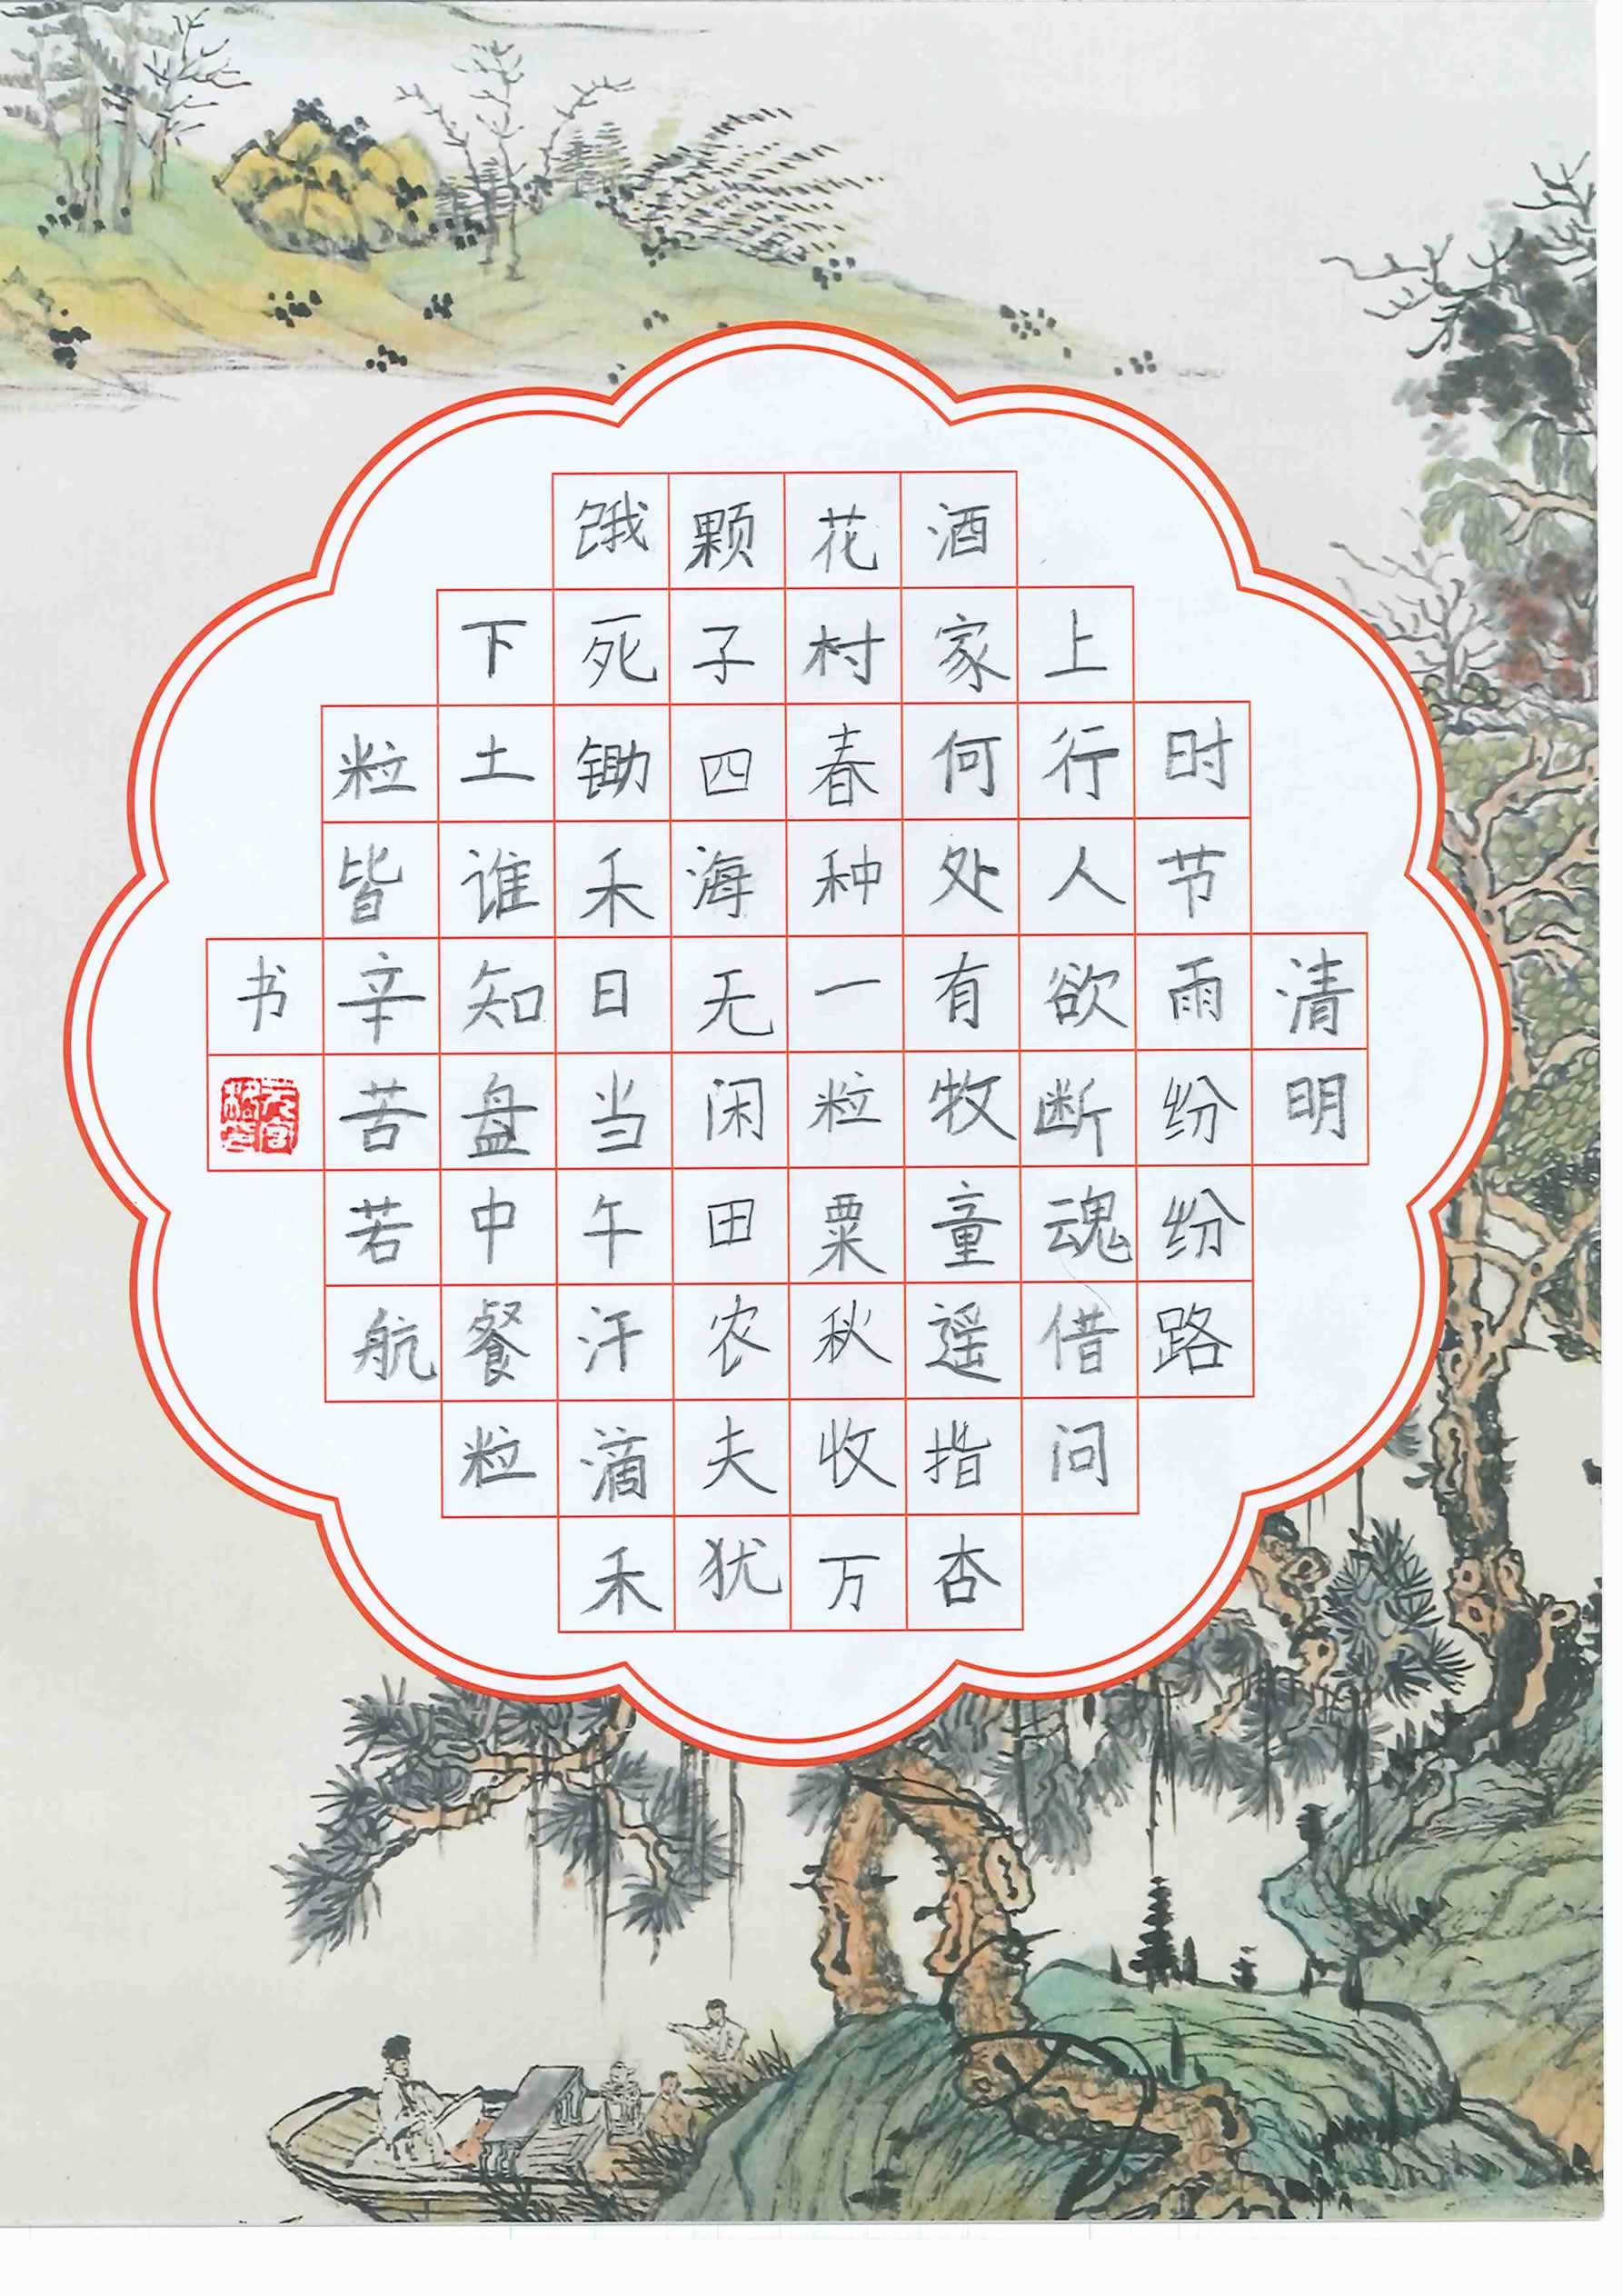 清明
时节雨纷纷路
上行人欲断魂借问
酒家何处有牧童遥指杏
花村春种一粒粟秋收万
颗子四海无闲田农夫犹
饿死锄禾日当午汗滴禾
下土谁知盘中餐粒
粒皆辛苦若航
书